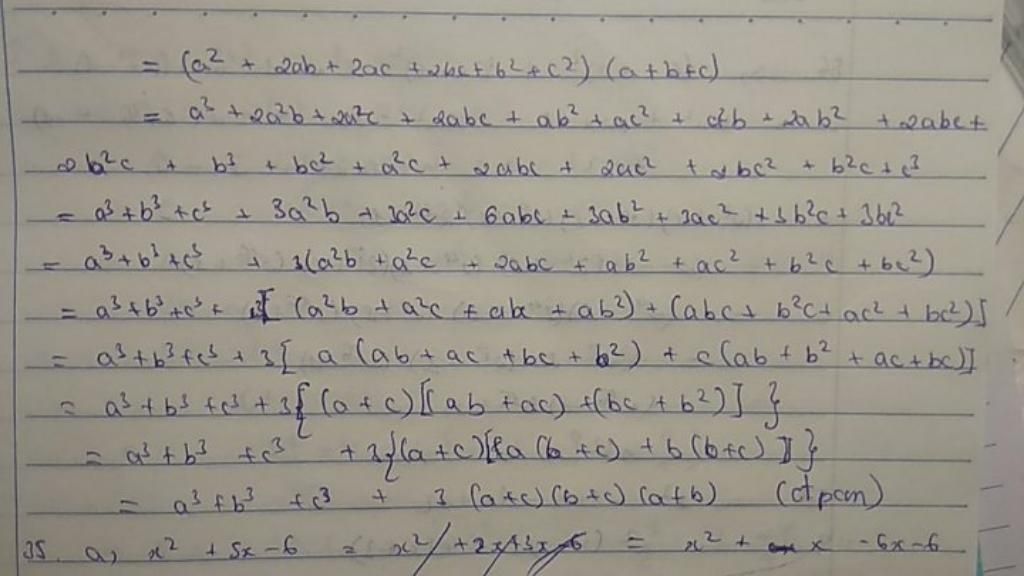 = (a² + 2ab + 2ac + 2bc + b² + c²) (a+b+c)
= a³ + 2a²b + 2a²c + 2abc + ab² + ac² + a²b + 2ab² + 2abc +
2b²c + b³ + bc² + a²c + 2abc + 2ac² + 2bc² + b²c + c³
= a³ + b³ + c³ + 3a²b + 3a²c + 6abc + 3ab² + 3ac² + 3b²c + 3bc²
= a³ + b³ + c³ + 3(a²b + a²c + 2abc + ab² + ac² + b²c + bc²)
= a³ + b³ + c³ + [ (a²b + a²c + abc + ab²) + (abc + b²c + ac² + bc²)]
= a³ + b³ + c³ + 3[ a (ab + ac + bc + b²) + c (ab + b² + ac + bc)]
= a³ + b³ + c³ + 3{ (a+c)[(ab + ac) + (bc + b²)] }
= a³ + b³ + c³ + 3{(a+c)[a (b+c) + b (b+c) ]}
= a³ + b³ + c³ + 3 (a+c) (b+c) (a+b) (đpcm)
35. a, x² + 5x - 6 = x² + 2x + 3x - 6 = x² + x - 6x - 6